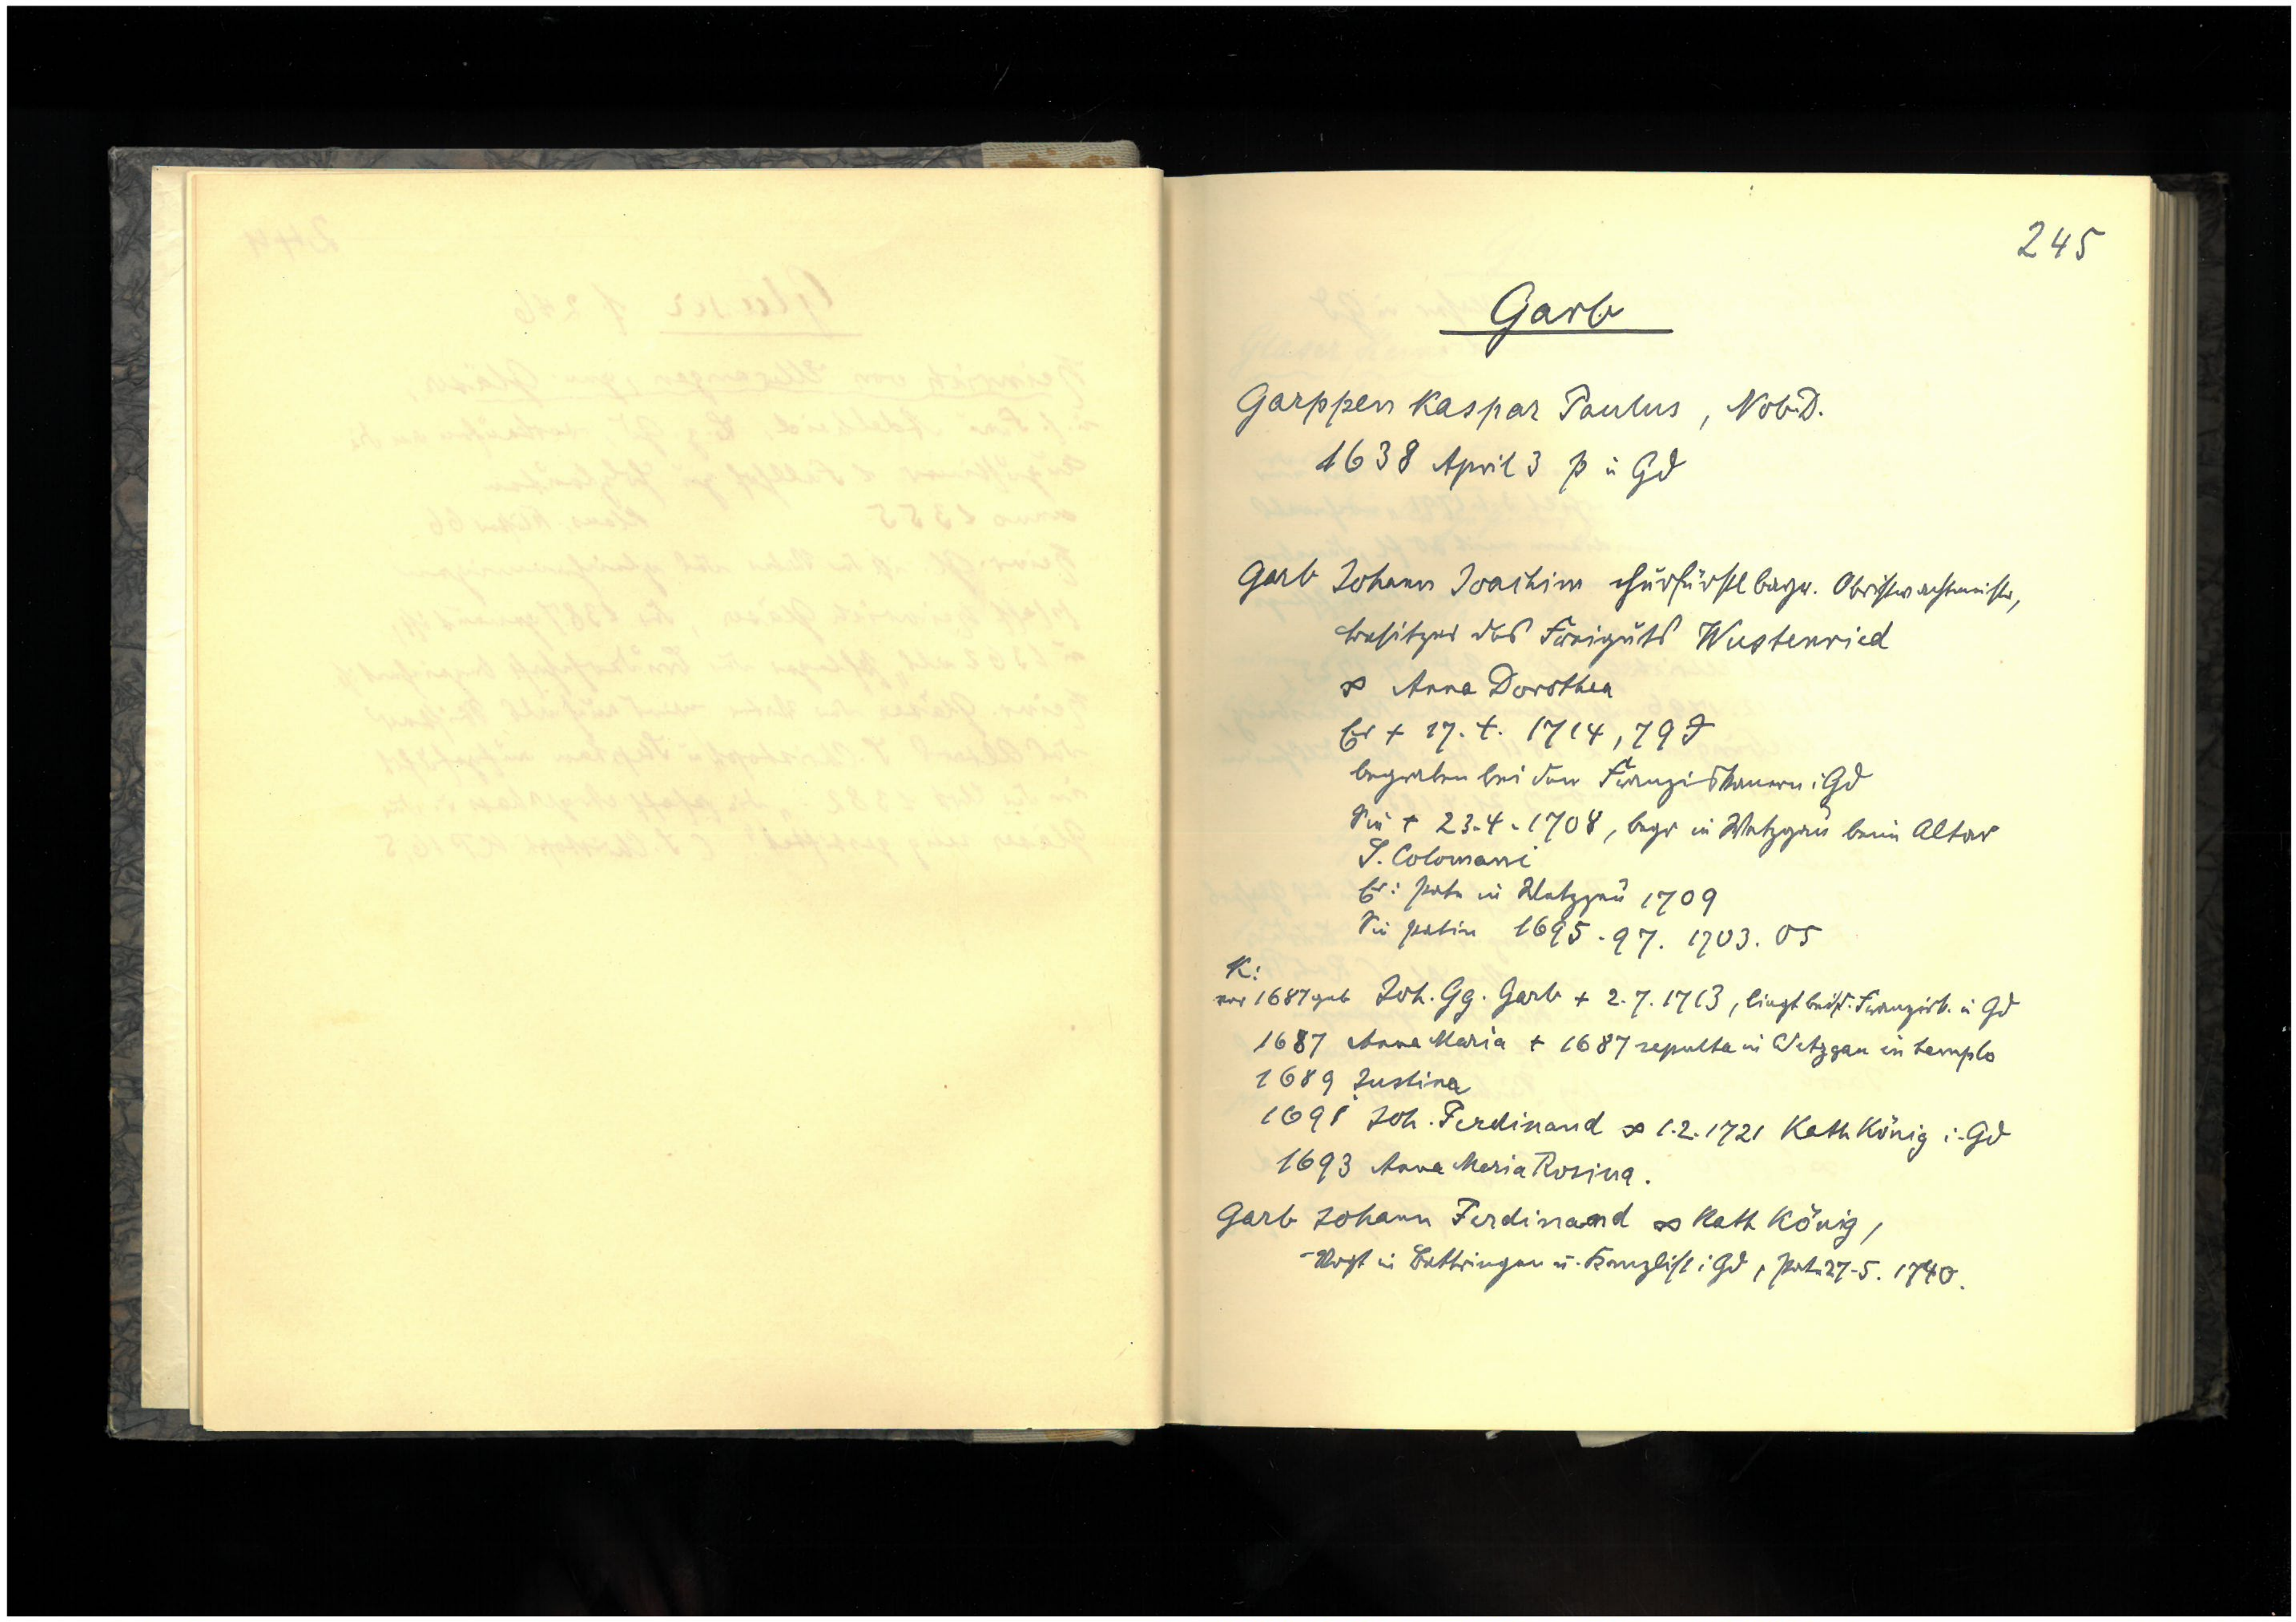 245
Garb
Garppen Kaspar Paulus, Nob. D.
1638 April 3 p i Gd
Garb Johann Joachim churfürstl bayr. Obristwachtmeister,
besitzer des Freiguts Wustenried
∞ Anna Dorothea
Er + 17. 4. 1714, 79 J
begraben bei den Franziskanern i Gd
Sie + 23.4.1708, begr in Wetzgau beim Altar
S. Colomani
Er: pate in Wetzgau 1709
Sie patin 1695.97. 1703. 05
K:
vor 1687 geb Joh. Gg. Garb + 2.7.1713, liegt bei d. Franzisk. i Gd
1687 Anna Maria + 1687 sepulta in Wetzgau in templo
1689 Justina
1691 Joh. Ferdinand ∞ 1.2.1721 Kath König i. Gd
1693 Anna Maria Rosina.
Garb Johann Ferdinand ∞ Kath König,
Vogt in Bettringen u. Kanzlist i Gd, pate 27.5. 1740.